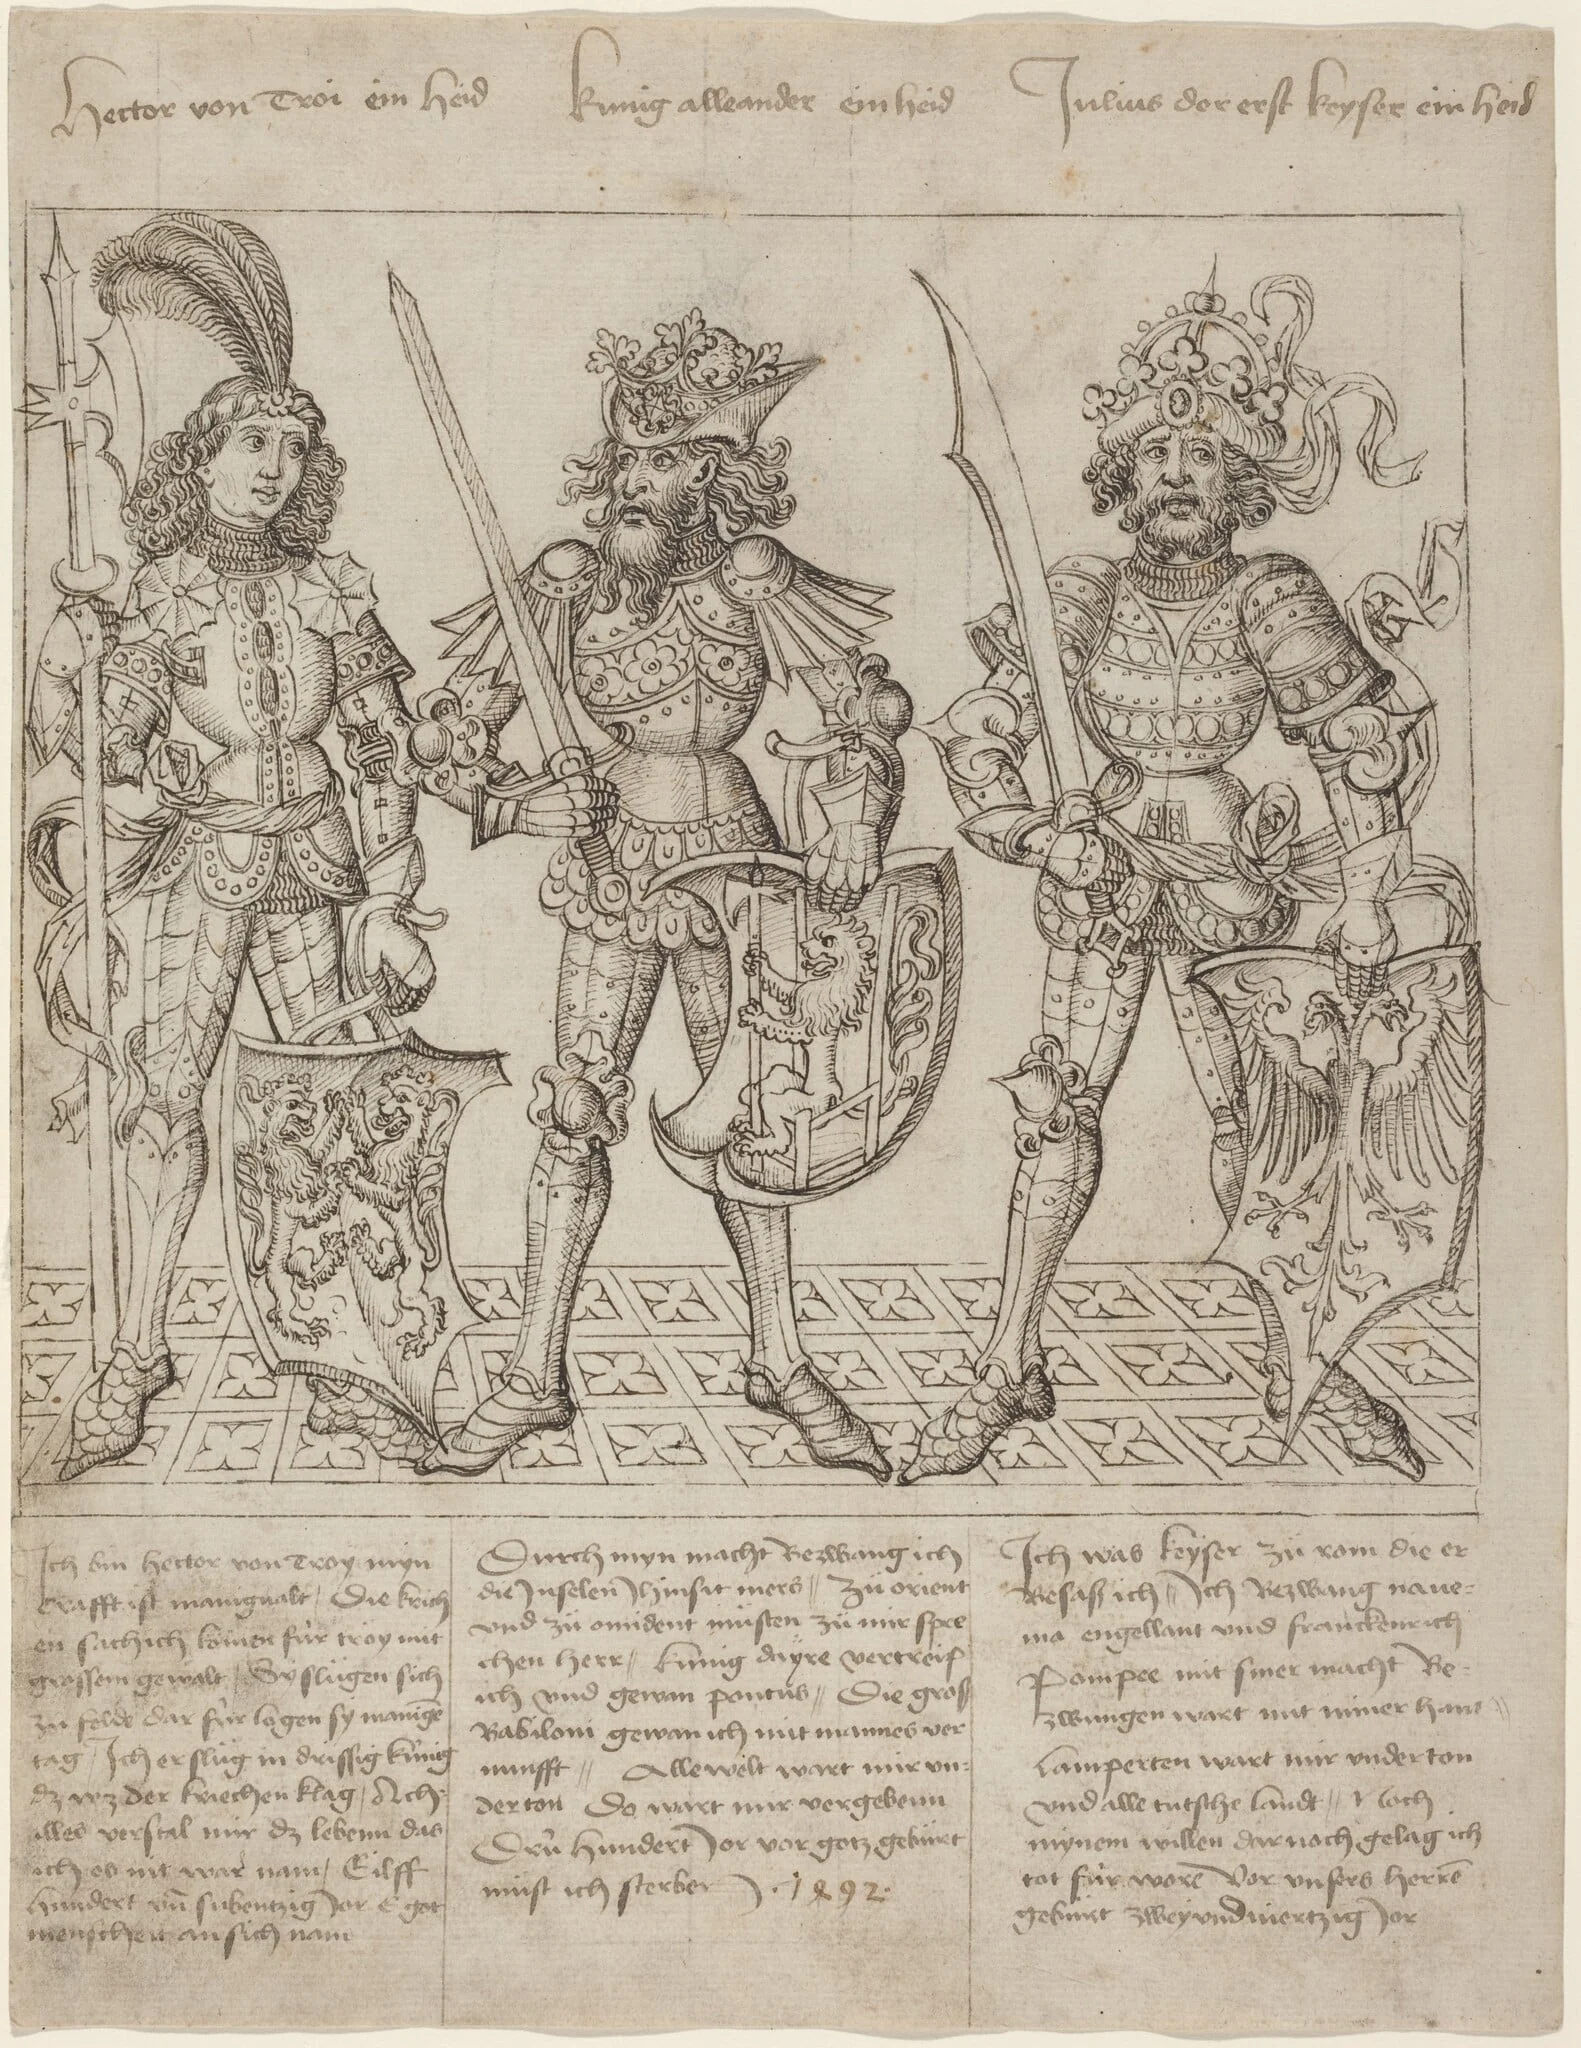 Hector von Troi ein heid
kunig alleander ein heid
Julius der erst keyser ein heid
Ich bin hector von Troy myn
crafft ist manigualt / Die krich
en sach ich komen für troy mit
grossem gewalt / Sy slügen sich
zu felde dar für lagen sy manige
tag / Ich er slüg in drissig künig
dz wz der kriechen klag / Ach-
illes verstal mir dz lebenn das
ich es nit war nam / Eilff
hundert vn̄ subentzig Jor E got
menscheit an sich nam
Durch myn macht Bezwang ich
die Jnselen Jhinsit mers // Zü orient
vnd zü occident müsten zü mir spre
chen herr // kunig dayre vertreip
ich vnd gewan pontus // Die gross
Babiloni gewan ich mit mannes ver
nunfft // Alle welt wart mir vn-
der ton Do wart mir vergebenn
Drü hundert Jor vor gotz gebürt
müst ich sterben 1492
Ich was keyser zü rom die er
Besass ich // Ich Bezwang
engellant vnd franckenrich
Pompee mit siner macht Be-
zwungen wart mit miner hant //
Lamperten wart mir vnder ton
vnd alle tutsche landt // Noch
mynem willen dar noch gelag ich
tot für worē Vor vnsers herrē
gebürt zwey vnd viertzig Jor